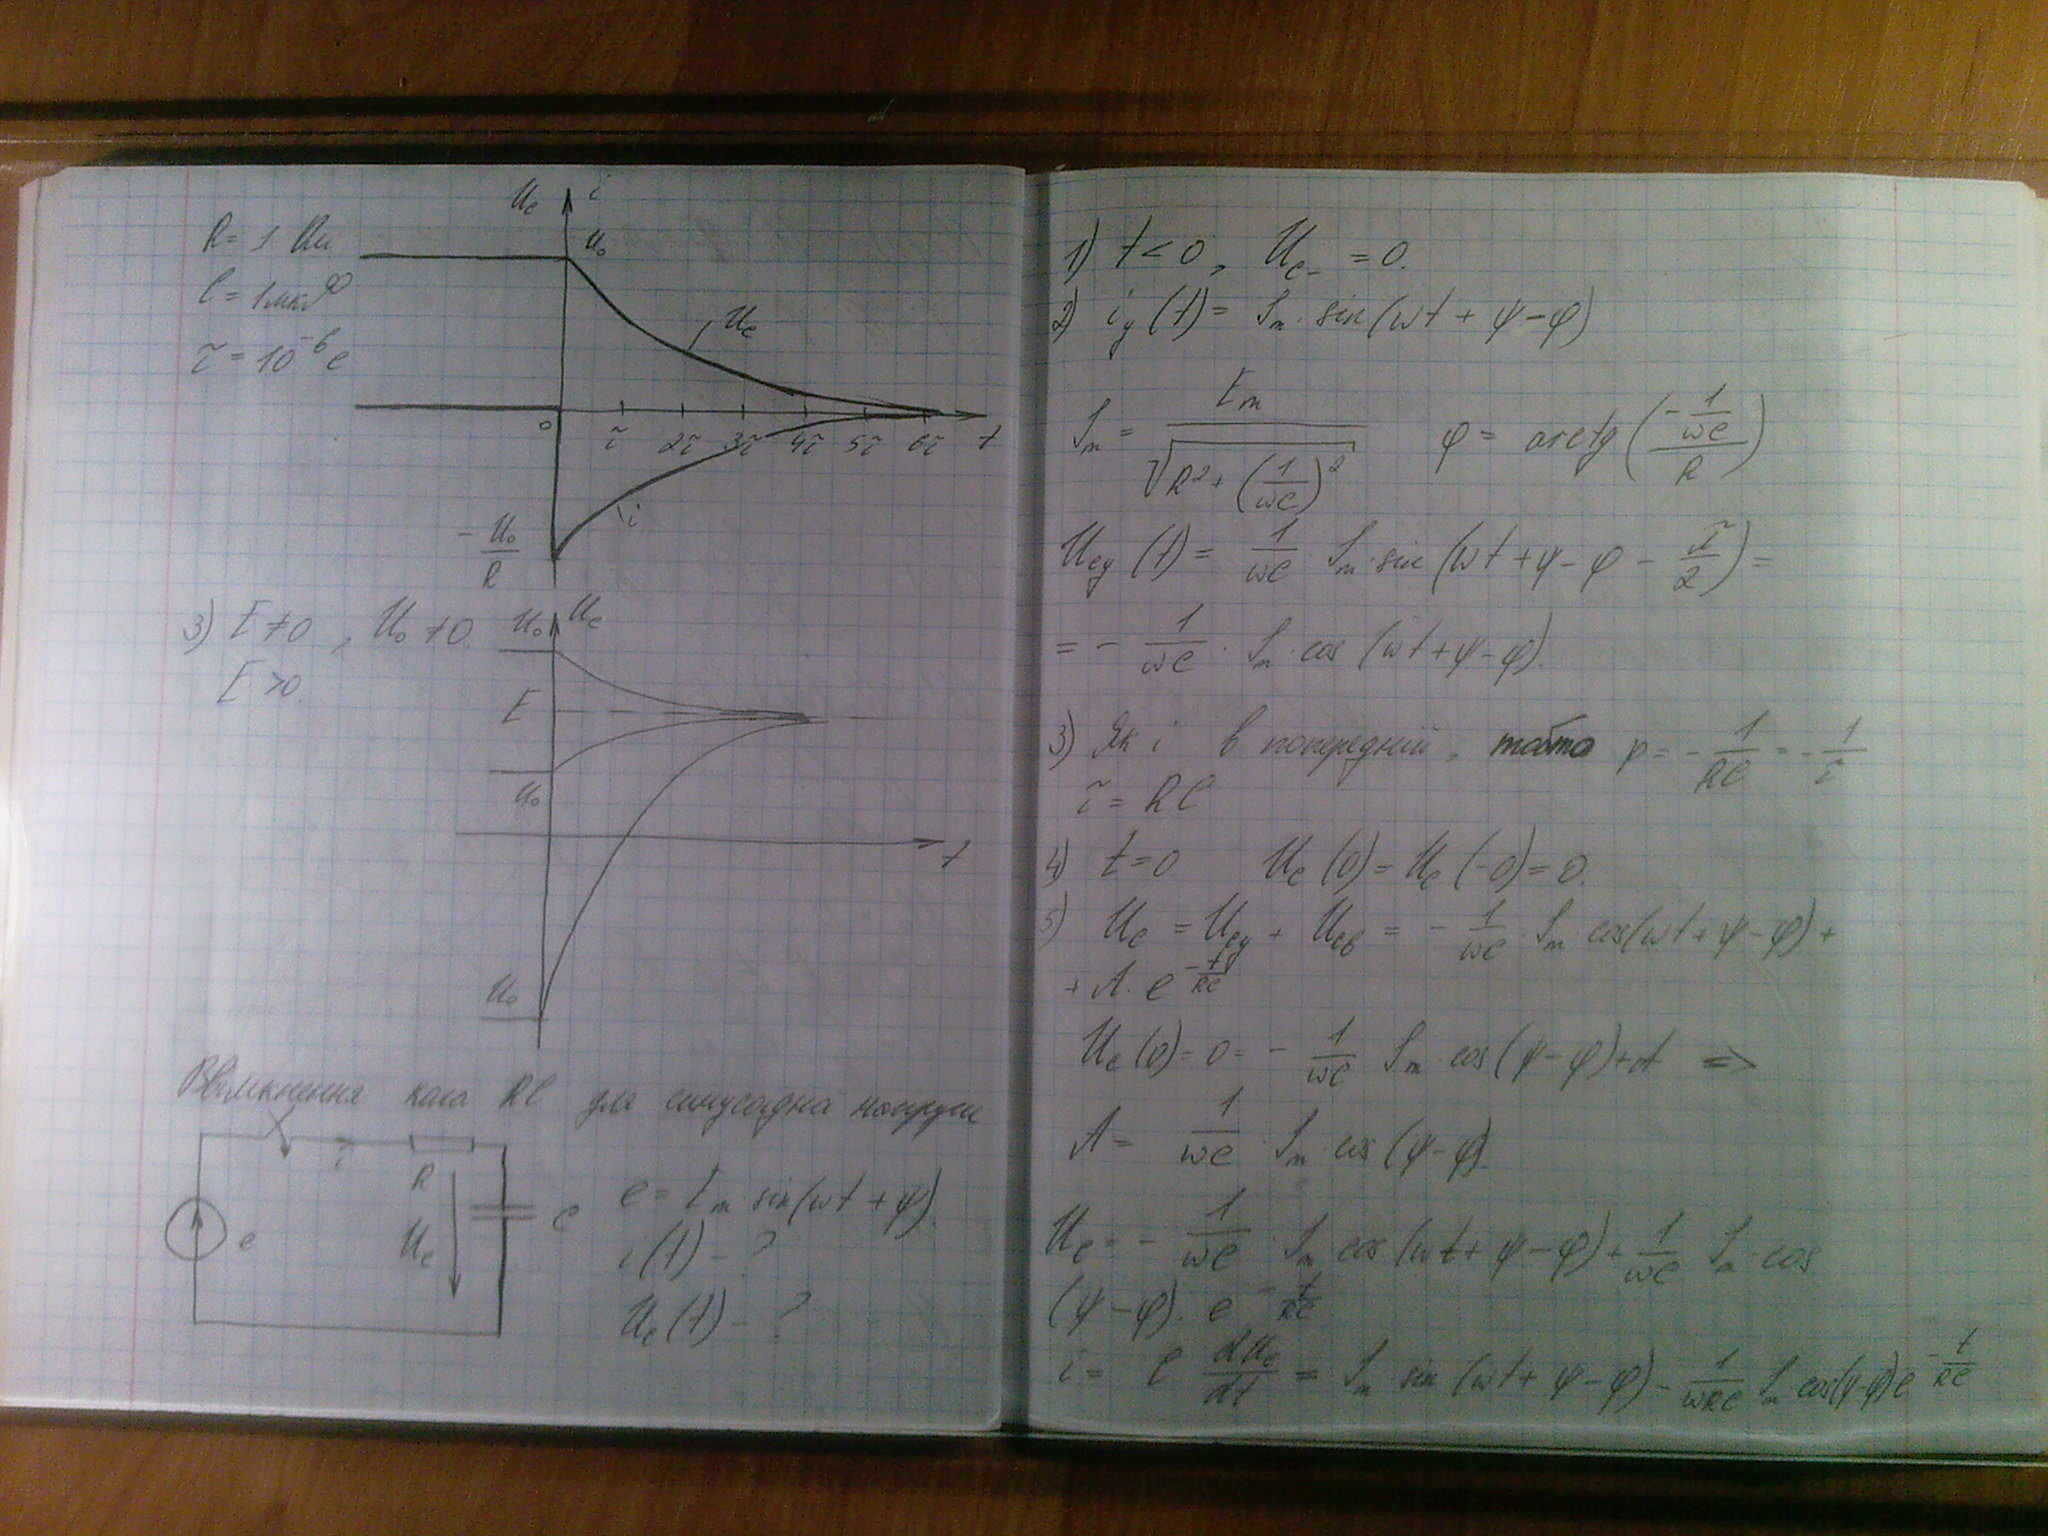 R = 1 Ом
C = 1 мкФ
τ = 10⁻⁶ с
Uc i
U₀
Uc
0 τ 2τ 3τ 4τ 5τ 6τ t
i
-U₀/R
3) E ≠ 0, U₀ ≠ 0.
E > 0.
U₀ Uc
E
U₀
t
U₀
Ввімкнення кола RC для синусоїдна напруги
i
R
e
Uc
C
e = Em sin(ωt + ψ).
i(t) - ?
Uc(t) - ?
1) t < 0, Uc- = 0.
2) iу(t) = Im · sin(ωt + ψ - φ)
Im = Em / √(R² + (1/ωC)²) φ = arctg((-1/ωC)/R)
Ucу(t) = 1/ωC Im · sin(ωt + ψ - φ - π/2) =
= - 1/ωC · Im · cos(ωt + ψ - φ).
3) Як і в попередній, тобто p = - 1/RC = - 1/τ
τ = RC
4) t = 0 Uc(0) = Uc(-0) = 0.
5) Uc = Ucу + Ucв = - 1/ωC · Im cos(ωt + ψ - φ) +
+ A · e^(-t/RC)
Uc(0) = 0 = - 1/ωC Im cos(ψ - φ) + A =>
A = 1/ωC · Im cos(ψ - φ).
Uc = - 1/ωC · Im cos(ωt + ψ - φ) + 1/ωC Im · cos
(ψ - φ) · e^(-t/RC)
i = C dUc/dt = Im sin(ωt + ψ - φ) - 1/ωRC Im cos(ψ-φ) e^(-t/RC)